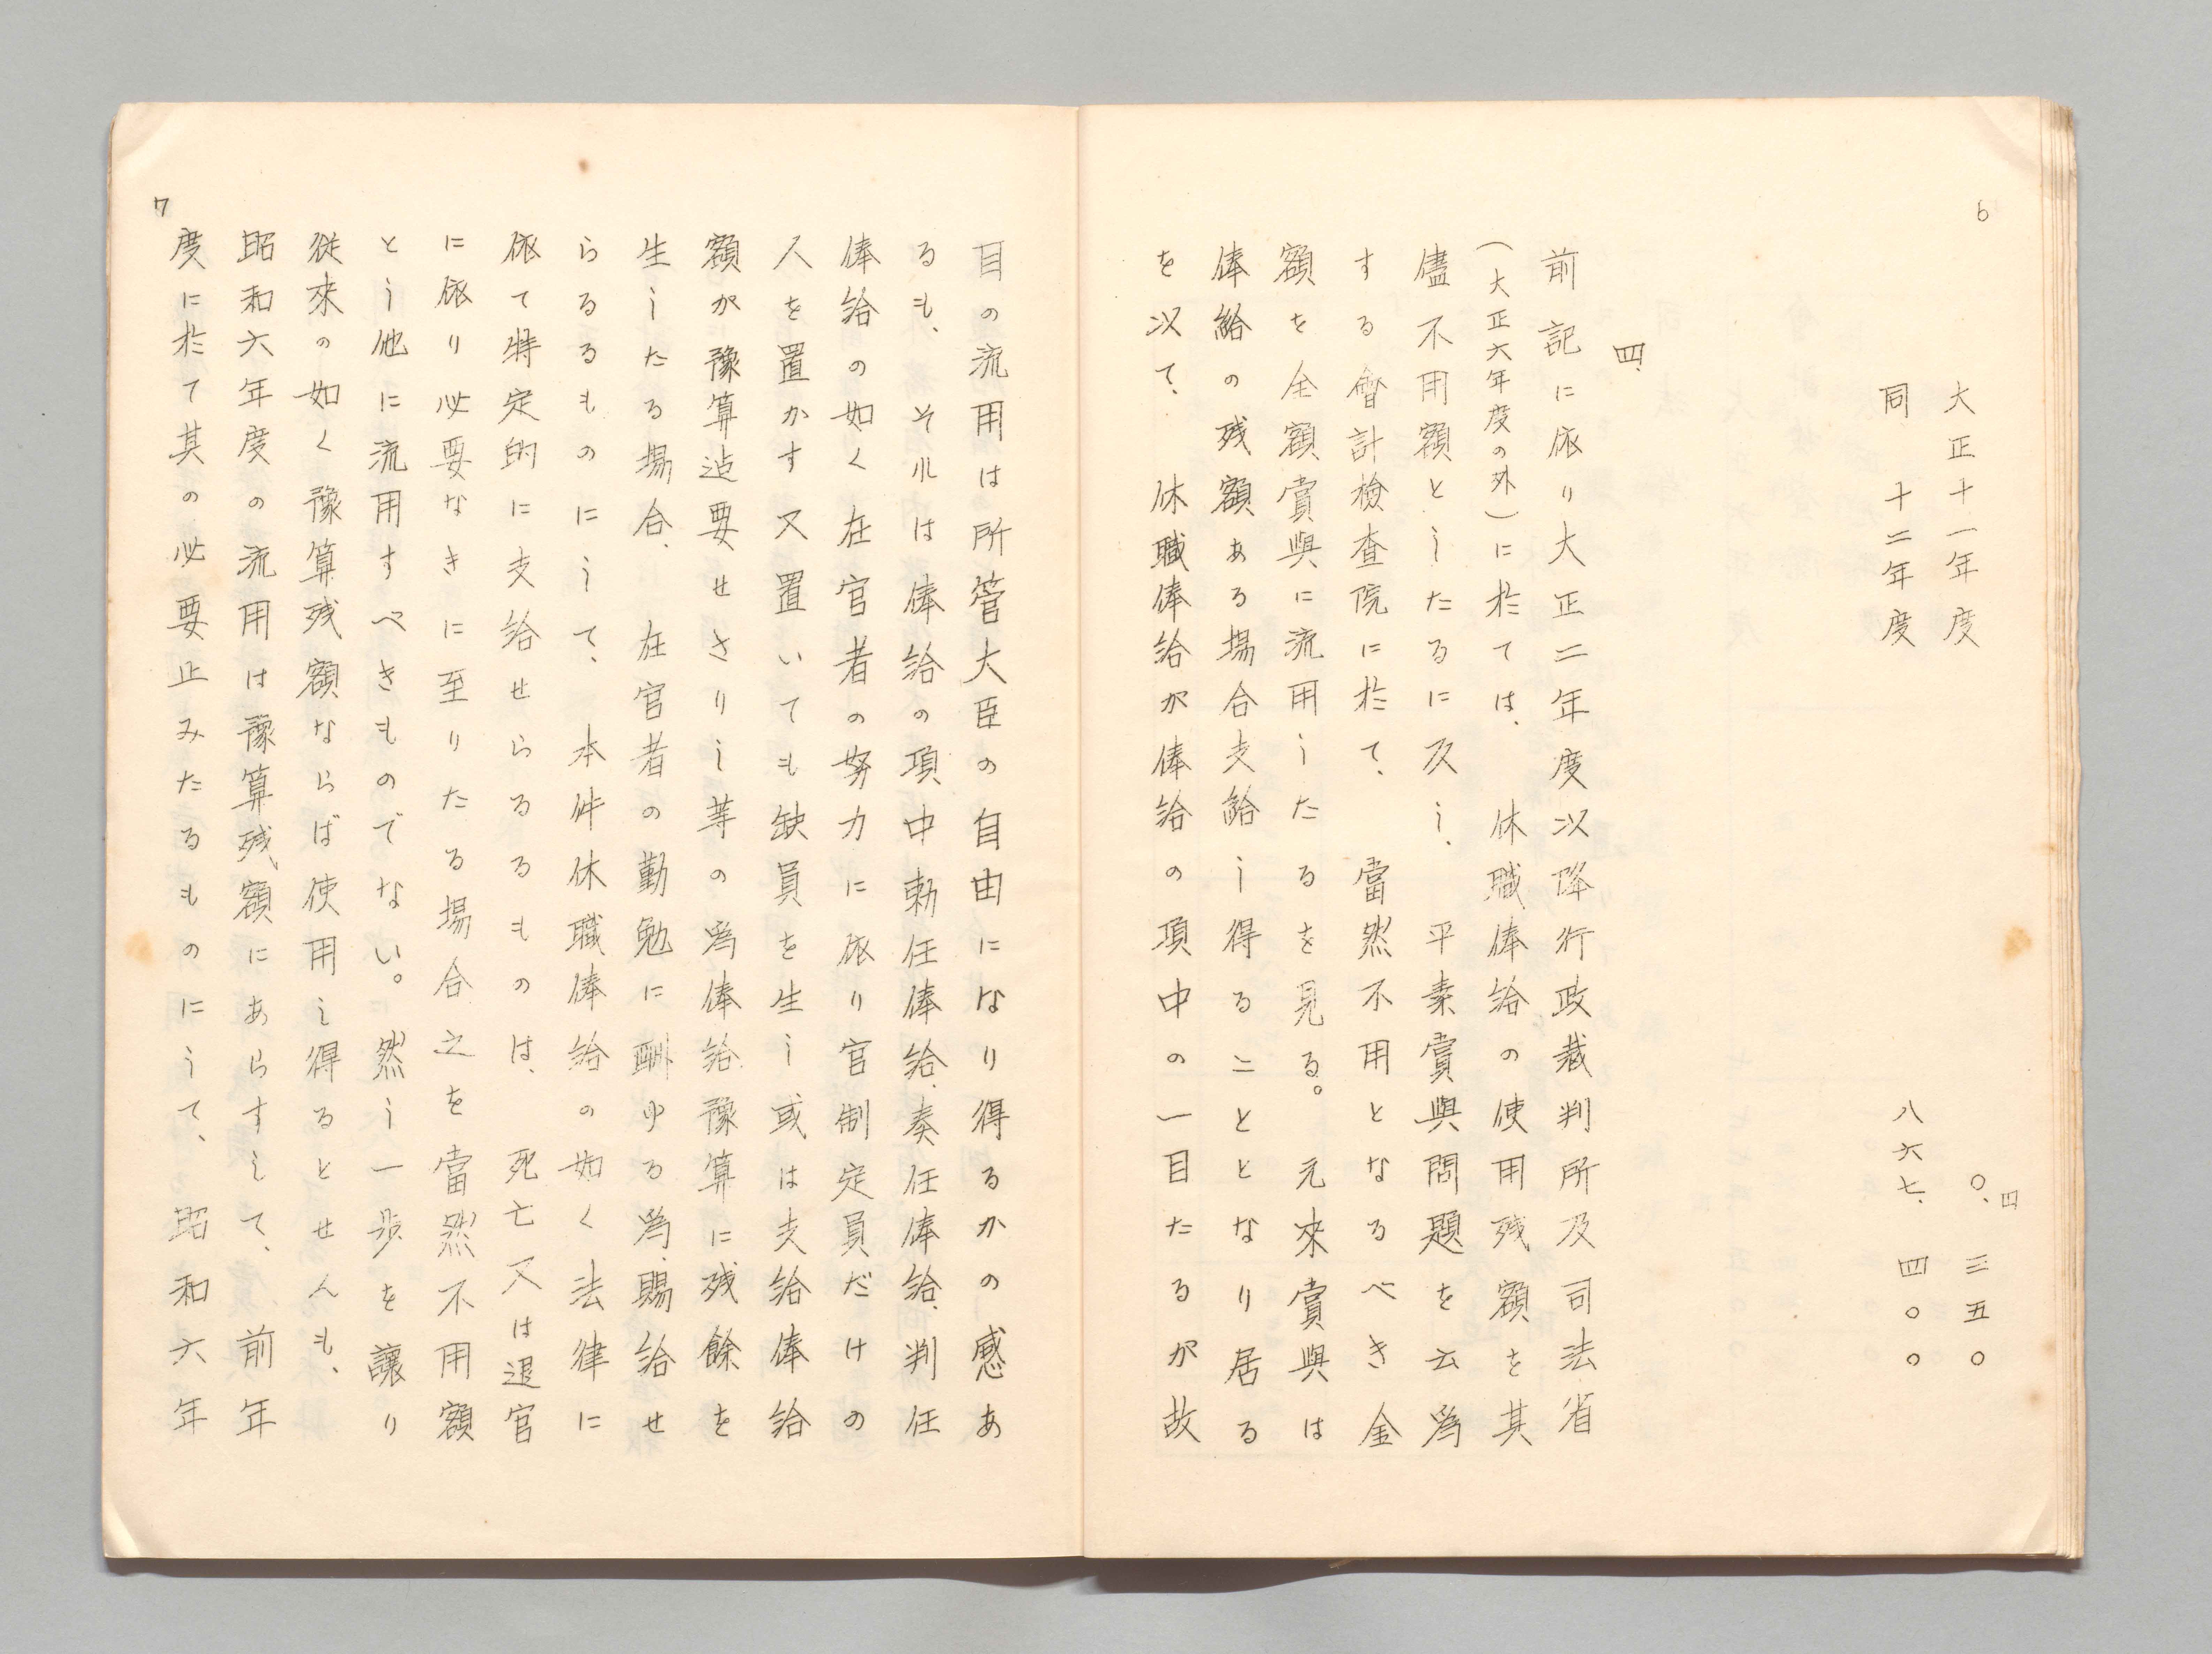 6
大正十一年度 四〇、三五〇
同 十二年度 八六七、四〇〇
四、
前記に依り大正二年度以降行政裁判所及司法省
（大正六年度の外）に於ては、休職俸給の使用残額を其
儘不用額としたるに反し、平素賞與問題を云爲
する會計檢査院に於て、當然不用となるべき金
額を全額賞與に流用したるを見る。元來賞與は
俸給の残額ある場合支給し得ることとなり居る
を以て、休職俸給が俸給の項中の一目たるが故
目の流用は所管大臣の自由になり得るかの感あ
るも、それは俸給の項中勅任俸給、奏任俸給、判任
俸給の如く在官者の努力に依り官制定員だけの
人を置かす又置いても缺員を生し或は支給俸給
額が豫算迠要せさりし等の爲俸給豫算に残餘を
生したる場合、在官者の勤勉に酬ゆる爲、賜給せ
らるるものにして、本件休職俸給の如く法律に
依て特定的に支給せらるるものは、死亡又は退官
に依り必要なきに至りたる場合之を當然不用額
とし他に流用すべきものでない。然し一歩を讓り
從來の如く豫算残額ならば使用し得るとせんも、
昭和六年度の流用は豫算残額にあらすして、前年
度に於て其の必要止みたるものにして、昭和六年
7